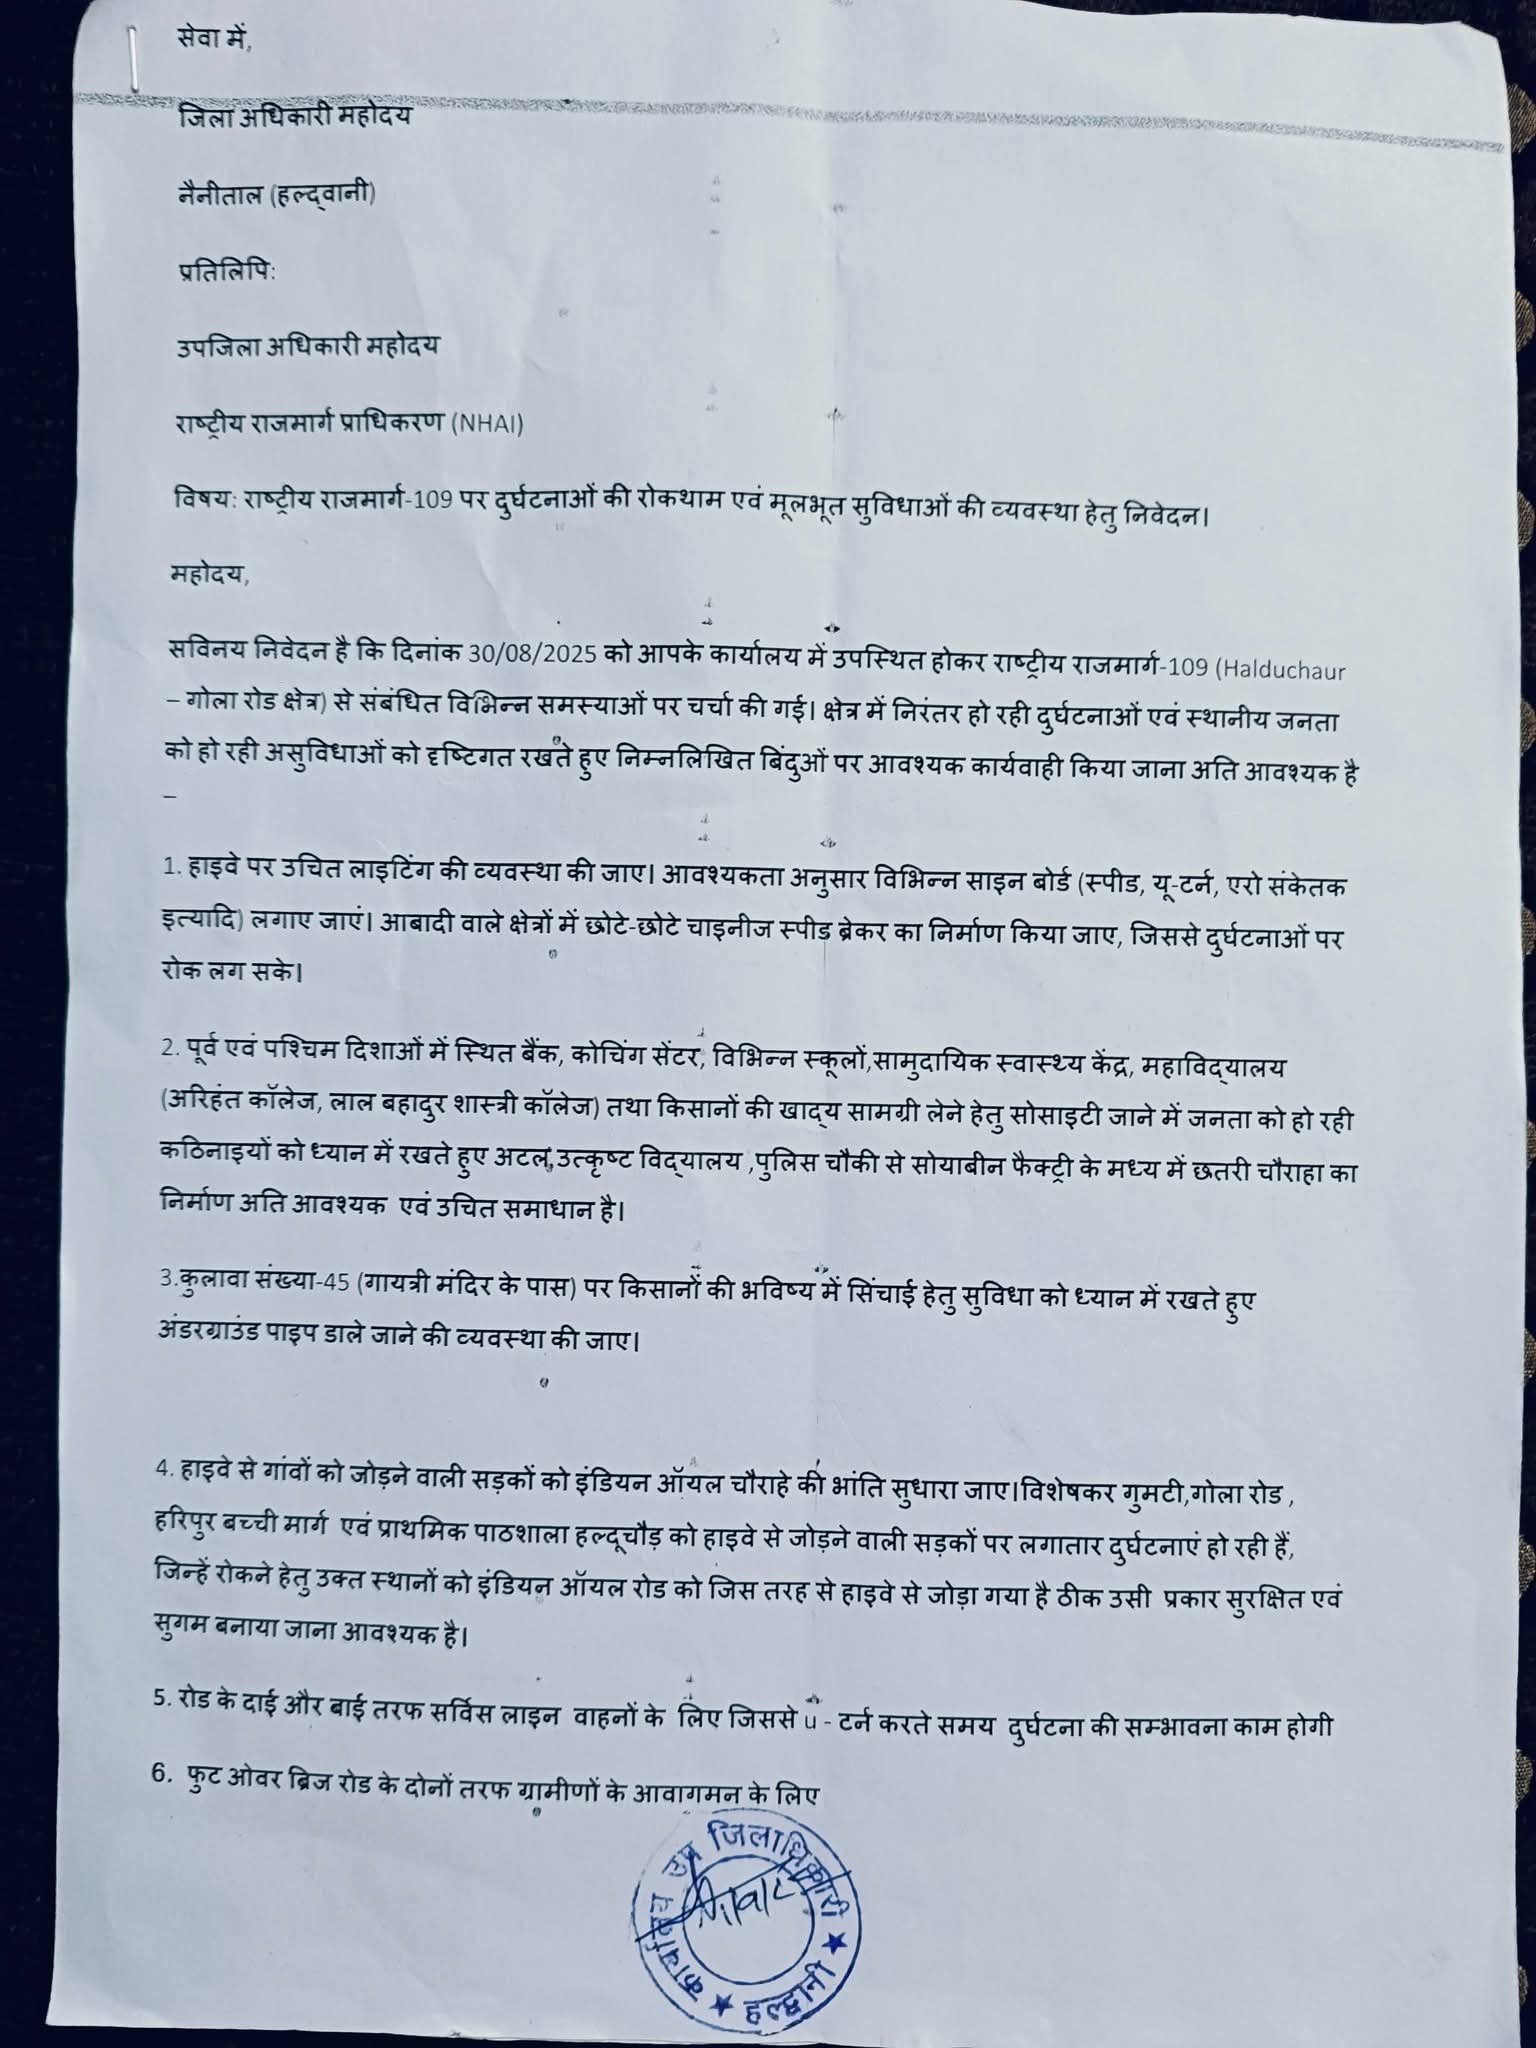 सेवा में,
जिला अधिकारी महोदय
नैनीताल (हल्द्वानी)
प्रतिलिपि:
उपजिला अधिकारी महोदय
राष्ट्रीय राजमार्ग प्राधिकरण (NHAI)
विषय: राष्ट्रीय राजमार्ग-109 पर दुर्घटनाओं की रोकथाम एवं मूलभूत सुविधाओं की व्यवस्था हेतु निवेदन।
महोदय,
सविनय निवेदन है कि दिनांक 30/08/2025 को आपके कार्यालय में उपस्थित होकर राष्ट्रीय राजमार्ग-109 (Halduchaur
– गोला रोड क्षेत्र) से संबंधित विभिन्न समस्याओं पर चर्चा की गई। क्षेत्र में निरंतर हो रही दुर्घटनाओं एवं स्थानीय जनता
को हो रही असुविधाओं को दृष्टिगत रखते हुए निम्नलिखित बिंदुओं पर आवश्यक कार्यवाही किया जाना अति आवश्यक है
–
1. हाइवे पर उचित लाइटिंग की व्यवस्था की जाए। आवश्यकता अनुसार विभिन्न साइन बोर्ड (स्पीड, यू-टर्न, एरो संकेतक
इत्यादि) लगाए जाएं। आबादी वाले क्षेत्रों में छोटे-छोटे चाइनीज स्पीड ब्रेकर का निर्माण किया जाए, जिससे दुर्घटनाओं पर
रोक लग सके।
2. पूर्व एवं पश्चिम दिशाओं में स्थित बैंक, कोचिंग सेंटर, विभिन्न स्कूलों,सामुदायिक स्वास्थ्य केंद्र, महाविद्यालय
(अरिहंत कॉलेज, लाल बहादुर शास्त्री कॉलेज) तथा किसानों की खाद्य सामग्री लेने हेतु सोसाइटी जाने में जनता को हो रही
कठिनाइयों को ध्यान में रखते हुए अटल,उत्कृष्ट विद्यालय ,पुलिस चौकी से सोयाबीन फैक्ट्री के मध्य में छतरी चौराहा का
निर्माण अति आवश्यक एवं उचित समाधान है।
3.कुलावा संख्या-45 (गायत्री मंदिर के पास) पर किसानों की भविष्य में सिंचाई हेतु सुविधा को ध्यान में रखते हुए
अंडरग्राउंड पाइप डाले जाने की व्यवस्था की जाए।
4. हाइवे से गांवों को जोड़ने वाली सड़कों को इंडियन ऑयल चौराहे की भांति सुधारा जाए।विशेषकर गुमटी,गोला रोड ,
हरिपुर बच्ची मार्ग एवं प्राथमिक पाठशाला हल्दूचौड़ को हाइवे से जोड़ने वाली सड़कों पर लगातार दुर्घटनाएं हो रही हैं,
जिन्हें रोकने हेतु उक्त स्थानों को इंडियन ऑयल रोड को जिस तरह से हाइवे से जोड़ा गया है ठीक उसी प्रकार सुरक्षित एवं
सुगम बनाया जाना आवश्यक है।
5. रोड के दाई और बाई तरफ सर्विस लाइन वाहनों के लिए जिससे u - टर्न करते समय दुर्घटना की सम्भावना काम होगी
6. फुट ओवर ब्रिज रोड के दोनों तरफ ग्रामीणों के आवागमन के लिए
कार्यालय उप जिलाधिकारी
★ हल्द्वानी ★